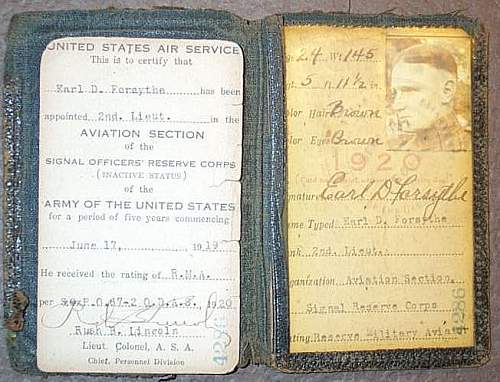 UNITED STATES AIR SERVICE
This is to certify that
Earl D. Forsythe has been
appointed 2nd. Lieut. in the
AVIATION SECTION
of the
SIGNAL OFFICERS' RESERVE CORPS
(INACTIVE STATUS)
of the
ARMY OF THE UNITED STATES
for a period of five years commencing
June 17, 1919
He received the rating of R.M.A.
per S.O.
Lincoln
Lieut. Colonel, A. S. A.
Chief. Personnel Division
4286
24 Wt 145
5 ft. 11 1/2 in.
olor Hair Brown
olor Eyes Brown
1920
ignature Earl D Forsythe
ame Typed Earl D. Forsythe
ank 2nd. Lieut.
ganization Aviation Section,
Signal Reserve Corps
ating Reserve Military Aviat
4286